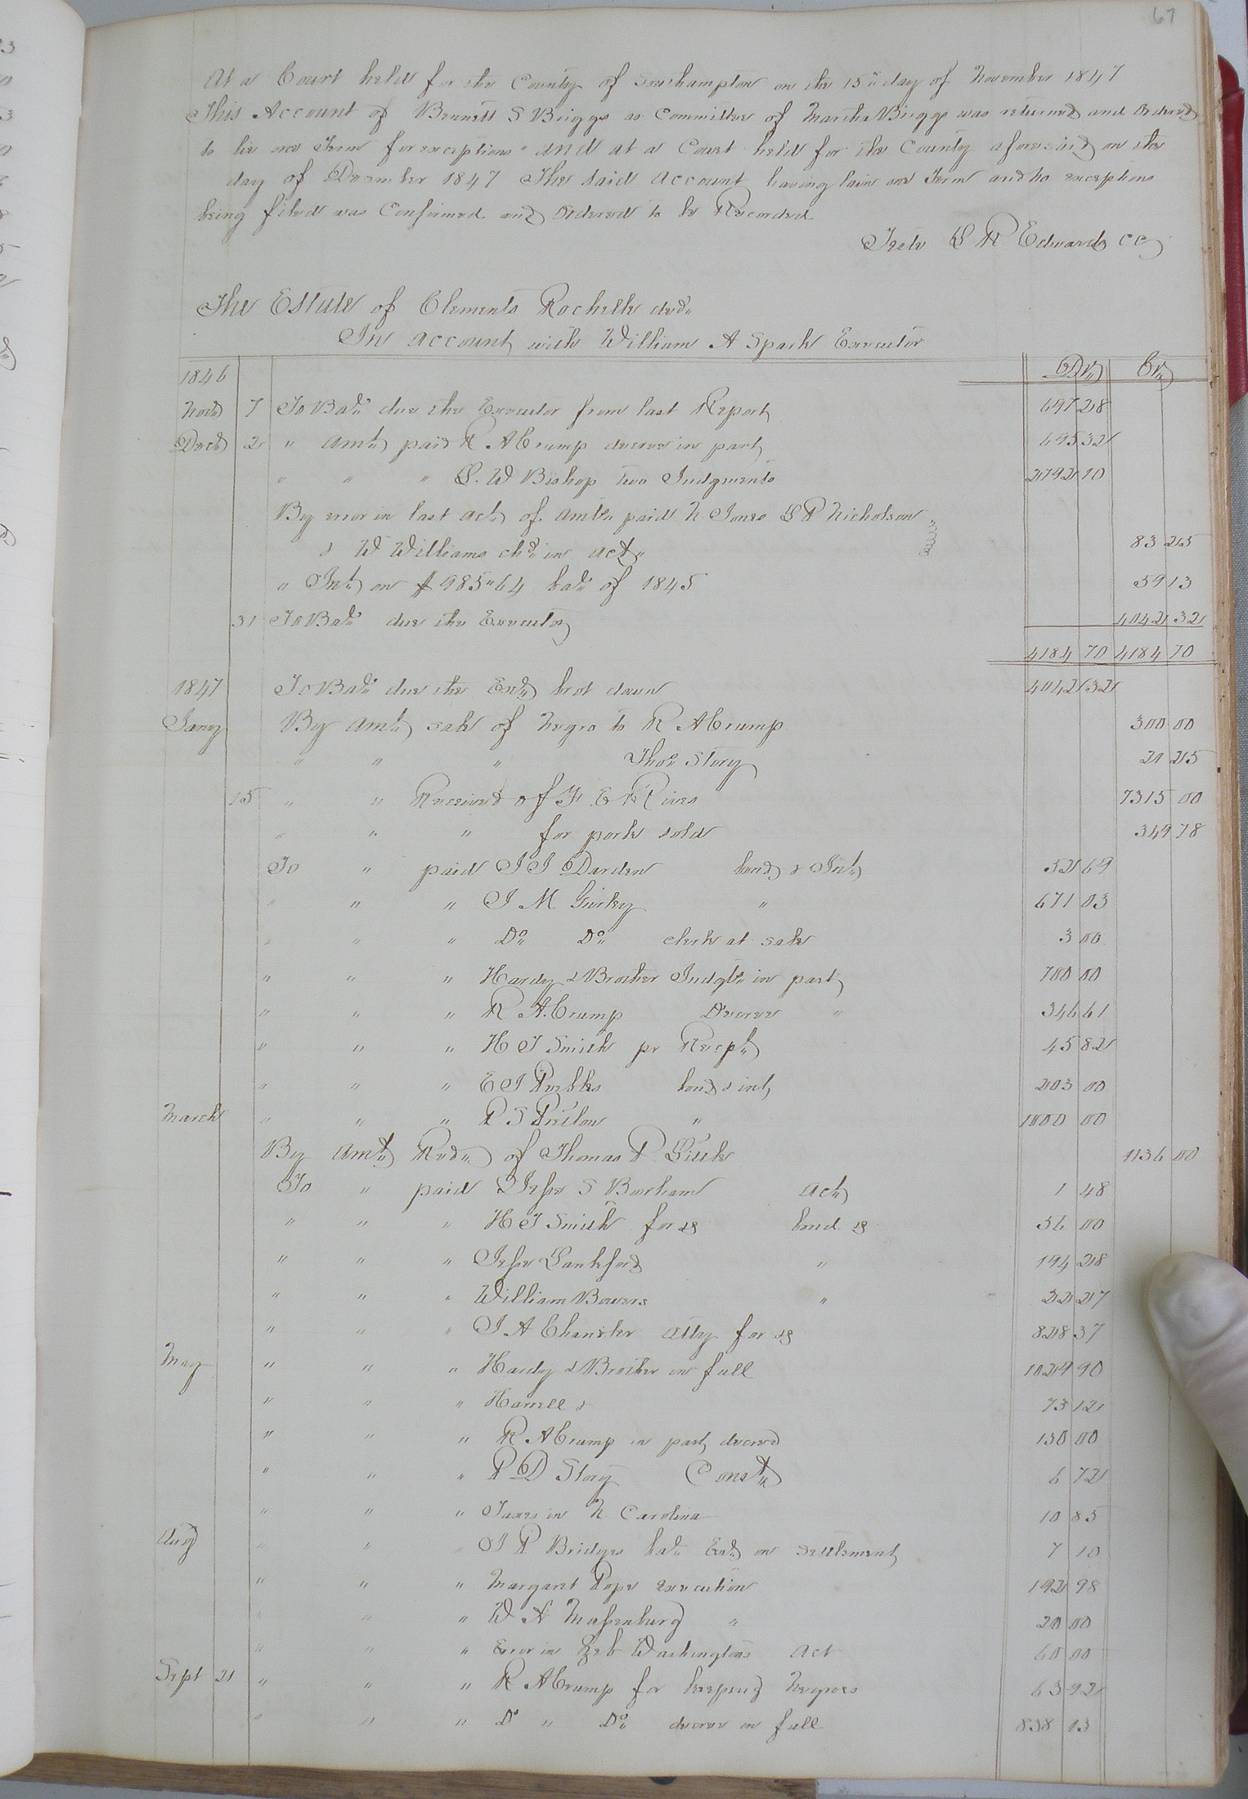 67
At a Court held for the County of Southampton on the 15th day of November 1847
This Account of Bennett S Briggs as Committee of Martha Briggs was returned and Ordered
to lie one Term for exceptions and at a Court held for the County aforesaid on the
day of December 1847 The said Account having lain one Term and no exceptions
being filed was Confirmed and Ordered to be Recorded
Teste L R Edwards CC
The Estate of Clements Rochelle decd
In Account with William A Spark Executor
1846 Drs Crs
Novr 7 To Bale due the Executor from last Report 697 28
Decr 2 " Amt paid R A Crump decree in part 695 32
" " " L. W Bishop two Judgments 2792 10
By error in last Act of Amts paid N Jones L P Nicholson
& W Williams chd in Act 83 25
" Int on $985"64 bale of 1845 59 13
31 To Bale due the Executor 4042 32
4184 70 4184 70
1847 To Bale due the Exr brot down 4042 32
Jany By Amt sale of Negro to R A Crump 300 00
" " " Thos Story 21 25
15 " " Received of F E Rives 7315 00
" " " for pork sold 349 78
To " paid J J Darden bond & Int 32 69
" " " J M Gurley " 671 03
" " " Do Do clerk at sale 3 00
" " " Hardy & Brother Judgts in part 700 00
" " " R A Crump Decree " 346 61
" " " H T Smith pr Recpt 45 82
" " " E J Peebles bond & int 203 00
March " " " P S Prelow " 1000 00
By Amt Recd of Thomas P Little 1136 00
To " paid Jesse S Barham Act 1 48
" " " H T Smith for &c bond &c 56 00
" " " Jesse Lankford " 194 28
" " " William Bowers " 32 27
" " " J A Chamber Atty for &c 828 37
May " " " Hardy & Brother in full 1029 90
" " " Harrell & 73 12
" " " R A Crump in part decree 130 00
" " " P D Story Const 6 72
" " " Taxes in N Carolina 10 85
Aug " " " J P Bridges bale Exr on settlement 7 10
" " " Margaret Pope execution 192 98
" " " W N Massenburg " 20 00
" " " Error in Geo Washingtons Act 60 00
Sept 21 " " " R A Crump for keeping Negroes 63 92
" " " Do " Do decree in full 838 13